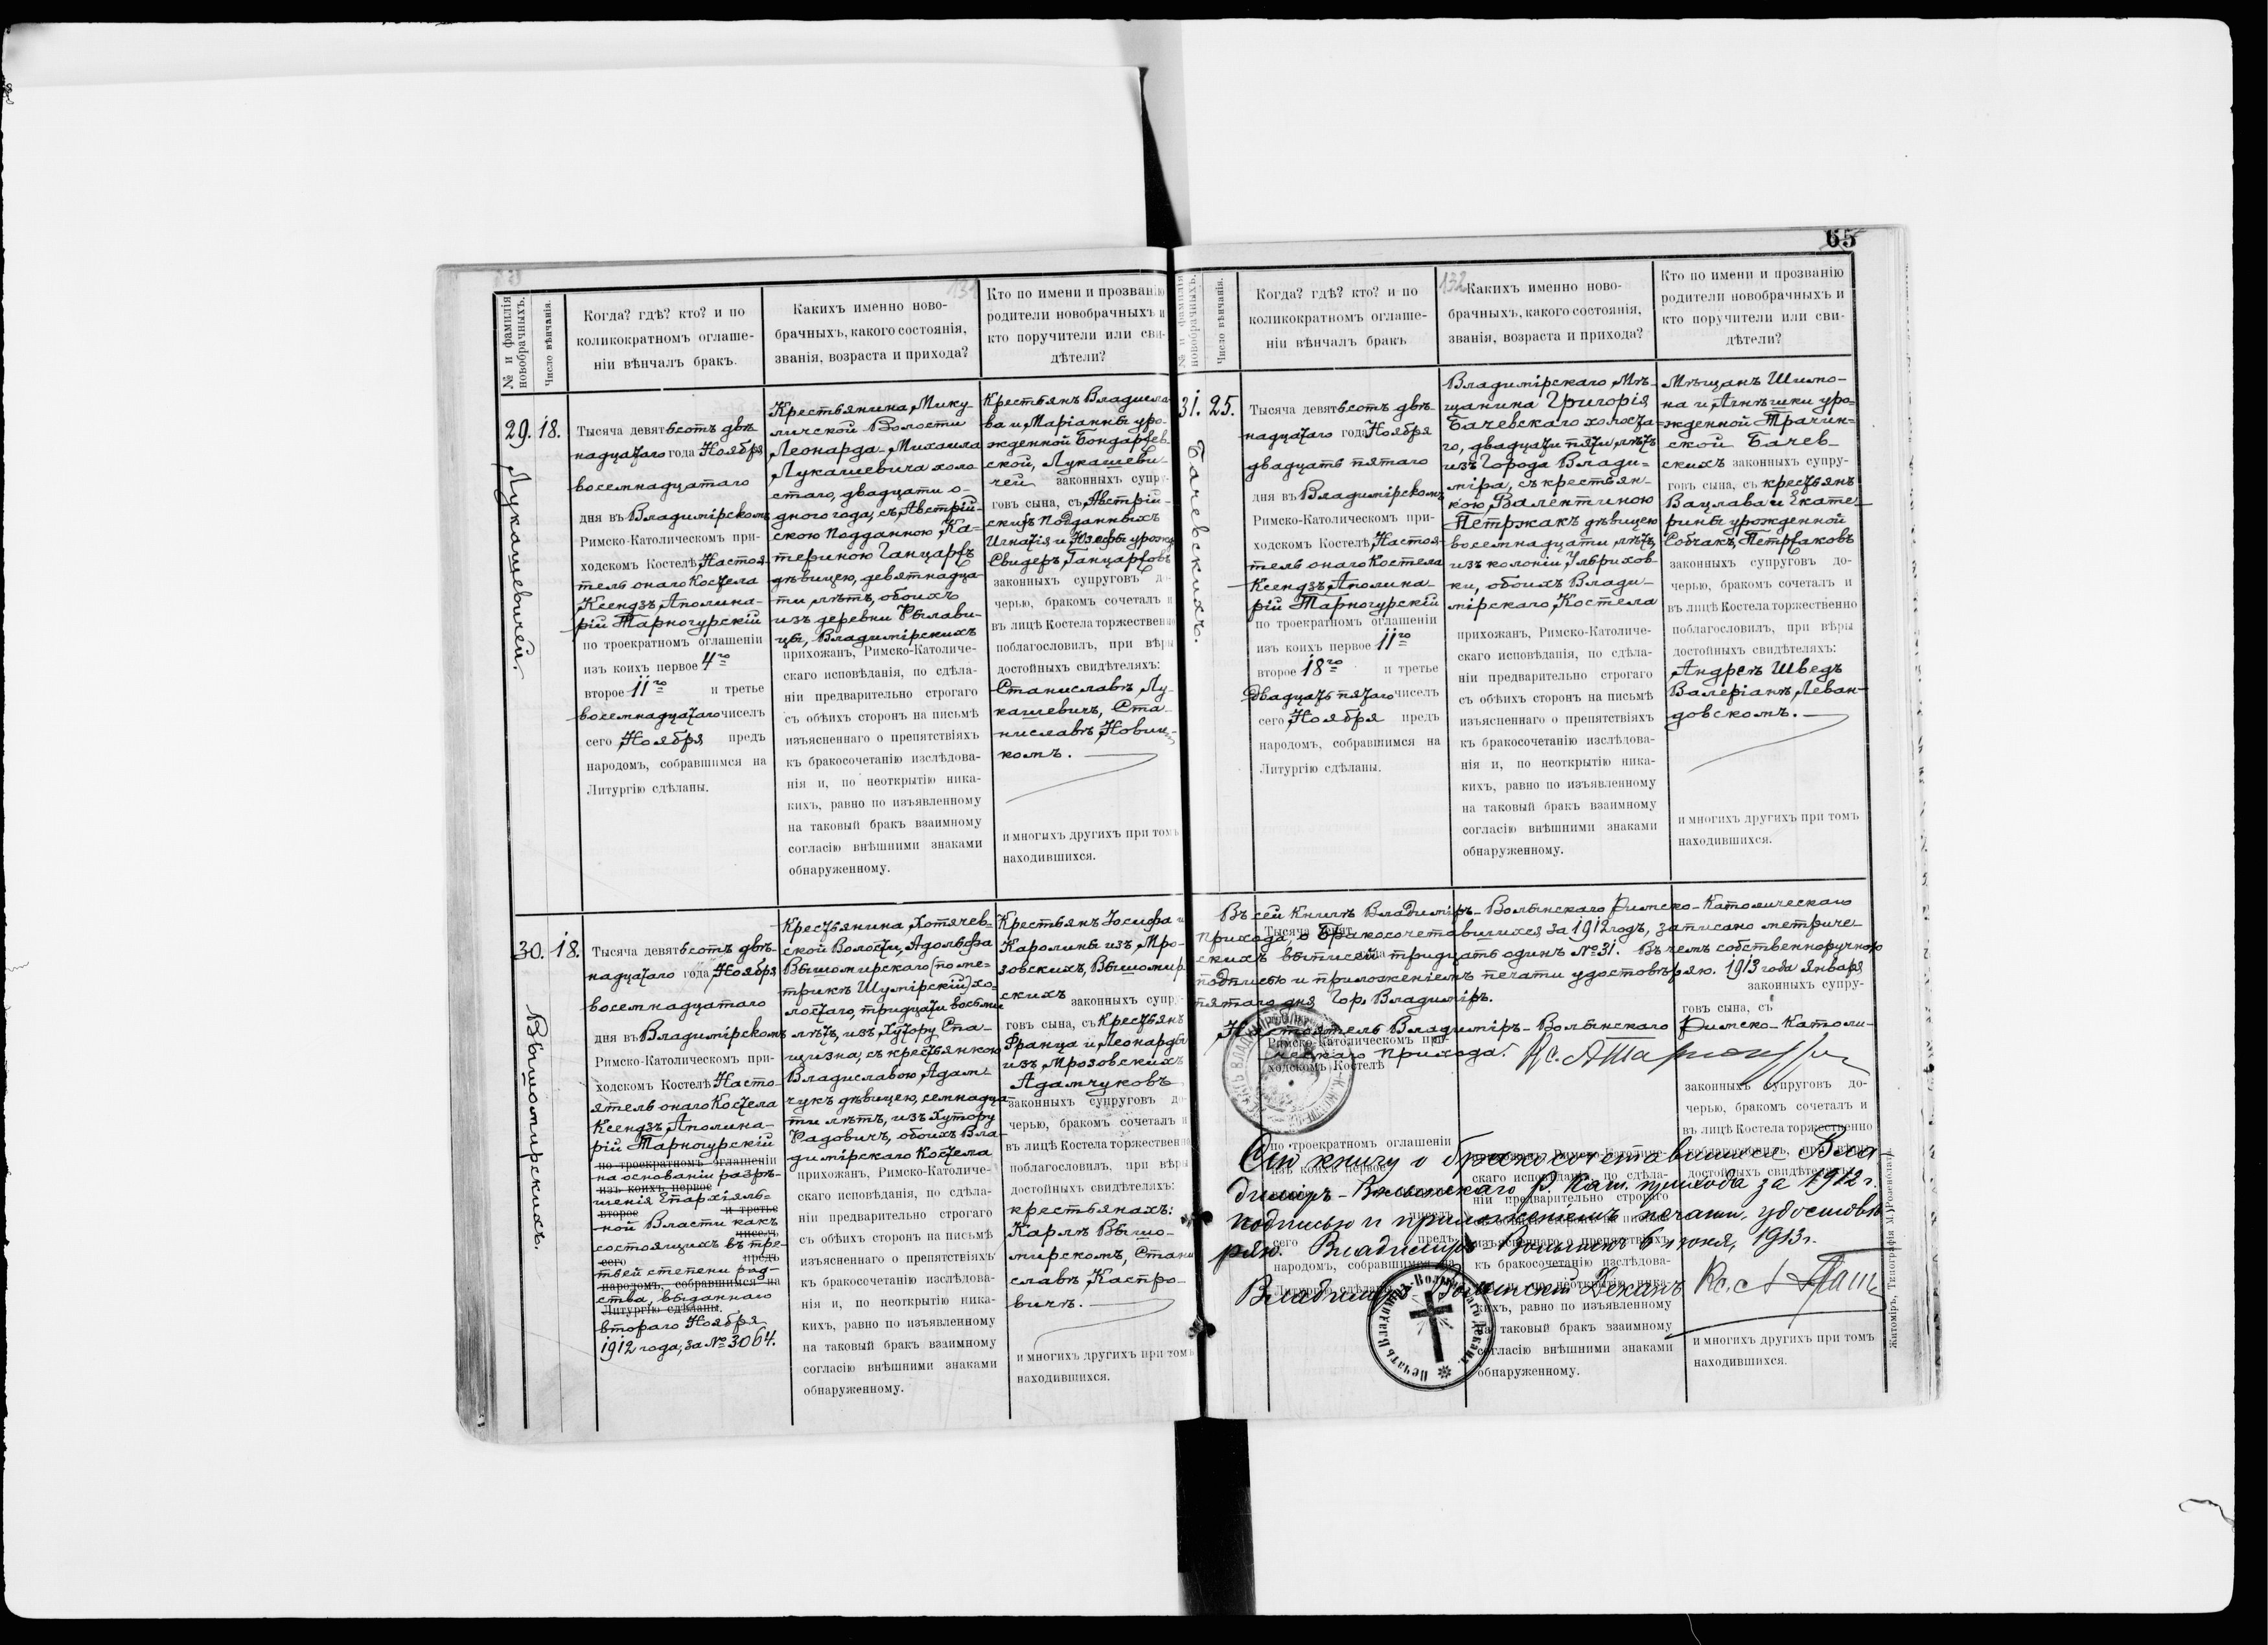 131
№ и фамилія новобрачныхъ.
Число вѣнчанія.
Когда? гдѣ? кто? и по
коликократномъ оглаше-
ніи вѣнчалъ бракъ.
Какихъ именно ново-
брачныхъ, какого состоянія,
званія, возраста и прихода?
Кто по имени и прозванію
родители новобрачныхъ и
кто поручители или сви-
дѣтели?
29. 18.
Лукашевичей.
Тысяча девятьсотъ двѣ-
надцатаго года Ноября
восемнадцатаго
дня въ Владимірскомъ
Римско-Католическомъ при-
ходскомъ Костелѣ Настоя-
тель онаго Костела
Ксендзъ Аполина-
рій Тарногурскій
по троекратномъ оглашеніи
изъ коихъ первое 4го
второе 11го и третье
восемнадцатаго числъ
сего Ноября предъ
народомъ, собравшимся на
Литургію сдѣланы.
Крестьянина, Мику-
личской Волости
Леонарда-Михаила
Лукашевича холо-
стаго, двадцати о-
дного года, съ Австрій-
скою Подданною Ка-
териною Ганцаръ
дѣвицею, девятнадца-
ти лѣтъ, обоихъ
изъ деревни Рылави-
цы, Владимірскихъ
прихожанъ, Римско-Католиче-
скаго исповѣданія, по сдѣла-
ніи предварительно строгаго
съ обѣихъ сторонъ на письмѣ
изъясненнаго о препятствіяхъ
къ бракосочетанію изслѣдова-
нія и, по неоткрытію ника-
кихъ, равно по изъявленному
на таковый бракъ взаимному
согласію внѣшними знаками
обнаруженному.
Крестьянъ Владисла-
ва и Маріанны уро-
жденной Бондарев-
ской, Лукашеви-
чей законныхъ супру-
говъ сына, съ Австрій-
скихъ Подданныхъ
Игнатія и Юзефы урожд.
Свидеръ, Ганцаровъ
законныхъ супруговъ до-
черью, бракомъ сочеталъ и
въ лицѣ Костела торжественно
поблагословилъ, при вѣры
достойныхъ свидѣтеляхъ:
Станиславѣ Лу-
кашевичъ, Ста-
ниславѣ Нович-
комъ.
и многихъ другихъ при томъ
находившихся.
30. 18.
Вышомирскихъ.
Тысяча девятьсотъ двѣ-
надцатаго года Ноября
восемнадцатаго
дня въ Владимірскомъ
Римско-Католическомъ при-
ходскомъ Костелѣ Насто-
ятель онаго Костела
Ксендзъ Аполина-
рій Тарногурскій
по троекратномъ оглашеніи
на основаніи разрѣ-
изъ коихъ первое
шенія Епархіяль-
второе и третье
ной Власти какъ
числъ
состоящихъ въ тре-
сего предъ
тьей степени род-
народомъ, собравшимся на
ства, выданнаго
Литургію сдѣланы.
втораго Ноября
1912 года, за № 3064.
Крестьянина, Хотячев-
ской Волости, Адольфа
Вышомирскаго (по ме-
трикѣ Шумірскій) хо-
лостаго, тридцати восьми
лѣтъ, изъ Хутору Спа-
щизна, съ крестьянкою
Владиславою Адам-
чукъ дѣвицею, семнадца-
ти лѣтъ, изъ Хутору
Радовичъ, обоихъ Вла-
димірскаго Костела
прихожанъ, Римско-Католиче-
скаго исповѣданія, по сдѣла-
ніи предварительно строгаго
съ обѣихъ сторонъ на письмѣ
изъясненнаго о препятствіяхъ
къ бракосочетанію изслѣдова-
нія и, по неоткрытію ника-
кихъ, равно по изъявленному
на таковый бракъ взаимному
согласію внѣшними знаками
обнаруженному.
Крестьянъ Іосифа и
Каролины изъ Мро-
зовскихъ, Вышомир-
скихъ законныхъ супру-
говъ сына, съ Крестьянъ
Франца и Леонарды
изъ Мрозовскихъ
Адамчуковъ
законныхъ супруговъ до-
черью, бракомъ сочеталъ и
въ лицѣ Костела торжественно
поблагословилъ, при вѣры
достойныхъ свидѣтеляхъ:
крестьянахъ:
Карлѣ Вышо-
мирскомъ, Стани-
славѣ Каспро-
вичѣ.
и многихъ другихъ при томъ
находившихся.
65
132
№ и фамилія новобрачныхъ.
Число вѣнчанія.
Когда? гдѣ? кто? и по
коликократномъ оглаше-
ніи вѣнчалъ бракъ
Какихъ именно ново-
брачныхъ, какого состоянія,
званія, возраста и прихода?
Кто по имени и прозванію
родители новобрачныхъ и
кто поручители или сви-
дѣтели?
31. 25.
Бачевскихъ.
Тысяча девятьсотъ двѣ-
надцатаго года Ноября
двадцать пятаго
дня въ Владимірскомъ
Римско-Католическомъ при-
ходскомъ Костелѣ, Настоя-
тель онаго Костела
Ксендзъ Аполина-
рій Тарногурскій
по троекратномъ оглашеніи
изъ коихъ первое 11го
второе 18го и третье
двадцать пятаго числъ
сего Ноября предъ
народомъ, собравшимся на
Литургію сдѣланы.
Владимірскаго Мѣ-
щанина Григорія
Бачевскаго холоста-
го, двадцати пяти лѣтъ
изъ Города Влади-
міра, съ крестьян-
кою Валентиною
Петржакъ дѣвицею
восемнадцати лѣтъ,
изъ колоніи Ульрихов-
ки, обоихъ Влади-
мірскаго Костела
прихожанъ, Римско-Католиче-
скаго исповѣданія, по сдѣла-
ніи предварительно строгаго
съ обѣихъ сторонъ на письмѣ
изъясненнаго о препятствіяхъ
къ бракосочетанію изслѣдова-
нія и, по неоткрытію ника-
кихъ, равно по изъявленному
на таковый бракъ взаимному
согласію внѣшними знаками
обнаруженному.
Мѣщанъ Шимо-
на и Агнѣшки уро-
жденной Трачин-
ской Бачев-
скихъ законныхъ супру-
говъ сына, съ крестьянъ
Вацлава и Екате-
рины урожденной
Собчакъ, Петржаковъ
законныхъ супруговъ до-
черью, бракомъ сочеталъ и
въ лицѣ Костела торжественно
поблагословилъ, при вѣры
достойныхъ свидѣтеляхъ:
Андреѣ Шведъ
Валеріанѣ Леван-
довскомъ.
и многихъ другихъ при томъ
находившихся.
Въ сей Книгѣ Владиміръ-Волынскаго Римско-Католическаго
прихода, о Бракосочетавшихся за 1912 годъ, записано метриче-
скихъ выписей тридцать одинъ № 31. Въ чемъ собственноручною
подписью и приложеніемъ печати удостовѣряю. 1913 года Января
пятаго дня Гор. Владиміръ.
законныхъ супру-
говъ сына, съ
Настоятель Владиміръ-Волынскаго Римско-Католи-
ческаго прихода: Кс. А Тарногурскі
Римско-Католическомъ при-
ходскомъ Костелѣ
законныхъ супруговъ до-
черью, бракомъ сочеталъ и
въ лицѣ Костела торжественно
по троекратномъ оглашеніи
Сію книгу о бракосочетавшихся Вла-
диміръ-Волынскаго Р. Кат. прихода за 1912 г.
подписью и приложеніемъ печати удостовѣ-
ряю. Владиміръ-Волынскъ 6 іюня, 1913 г.
Владиміръ-Волынскій Деканъ Кс.
народомъ, собравшимся на
къ бракосочетанію изслѣдова-
кихъ, равно по изъявленному
на таковый бракъ взаимному
согласію внѣшними знаками
обнаруженному.
и многихъ другихъ при томъ
находившихся.
Печать Владиміръ-Волынскаго Декана.
Житоміръ, Типографія М. Розенблата